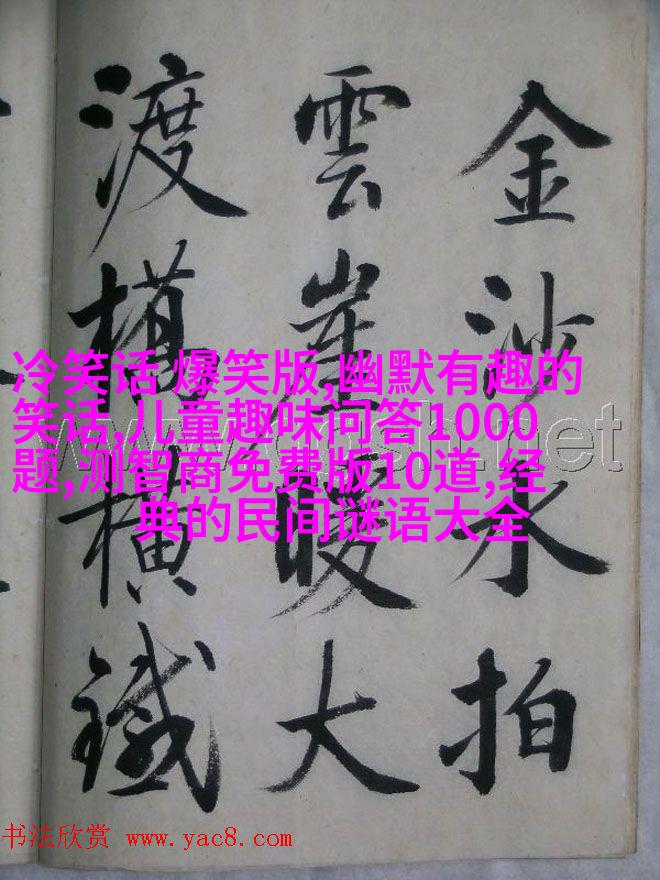 金沙水拍
雲崖暖大
渡橋橫鐵
冷笑话 爆笑版,幽默有趣的
笑话,儿童趣味问答1000
题,测智商免费版10道,经
典的民间谜语大全
书法欣赏 www.yac8.com